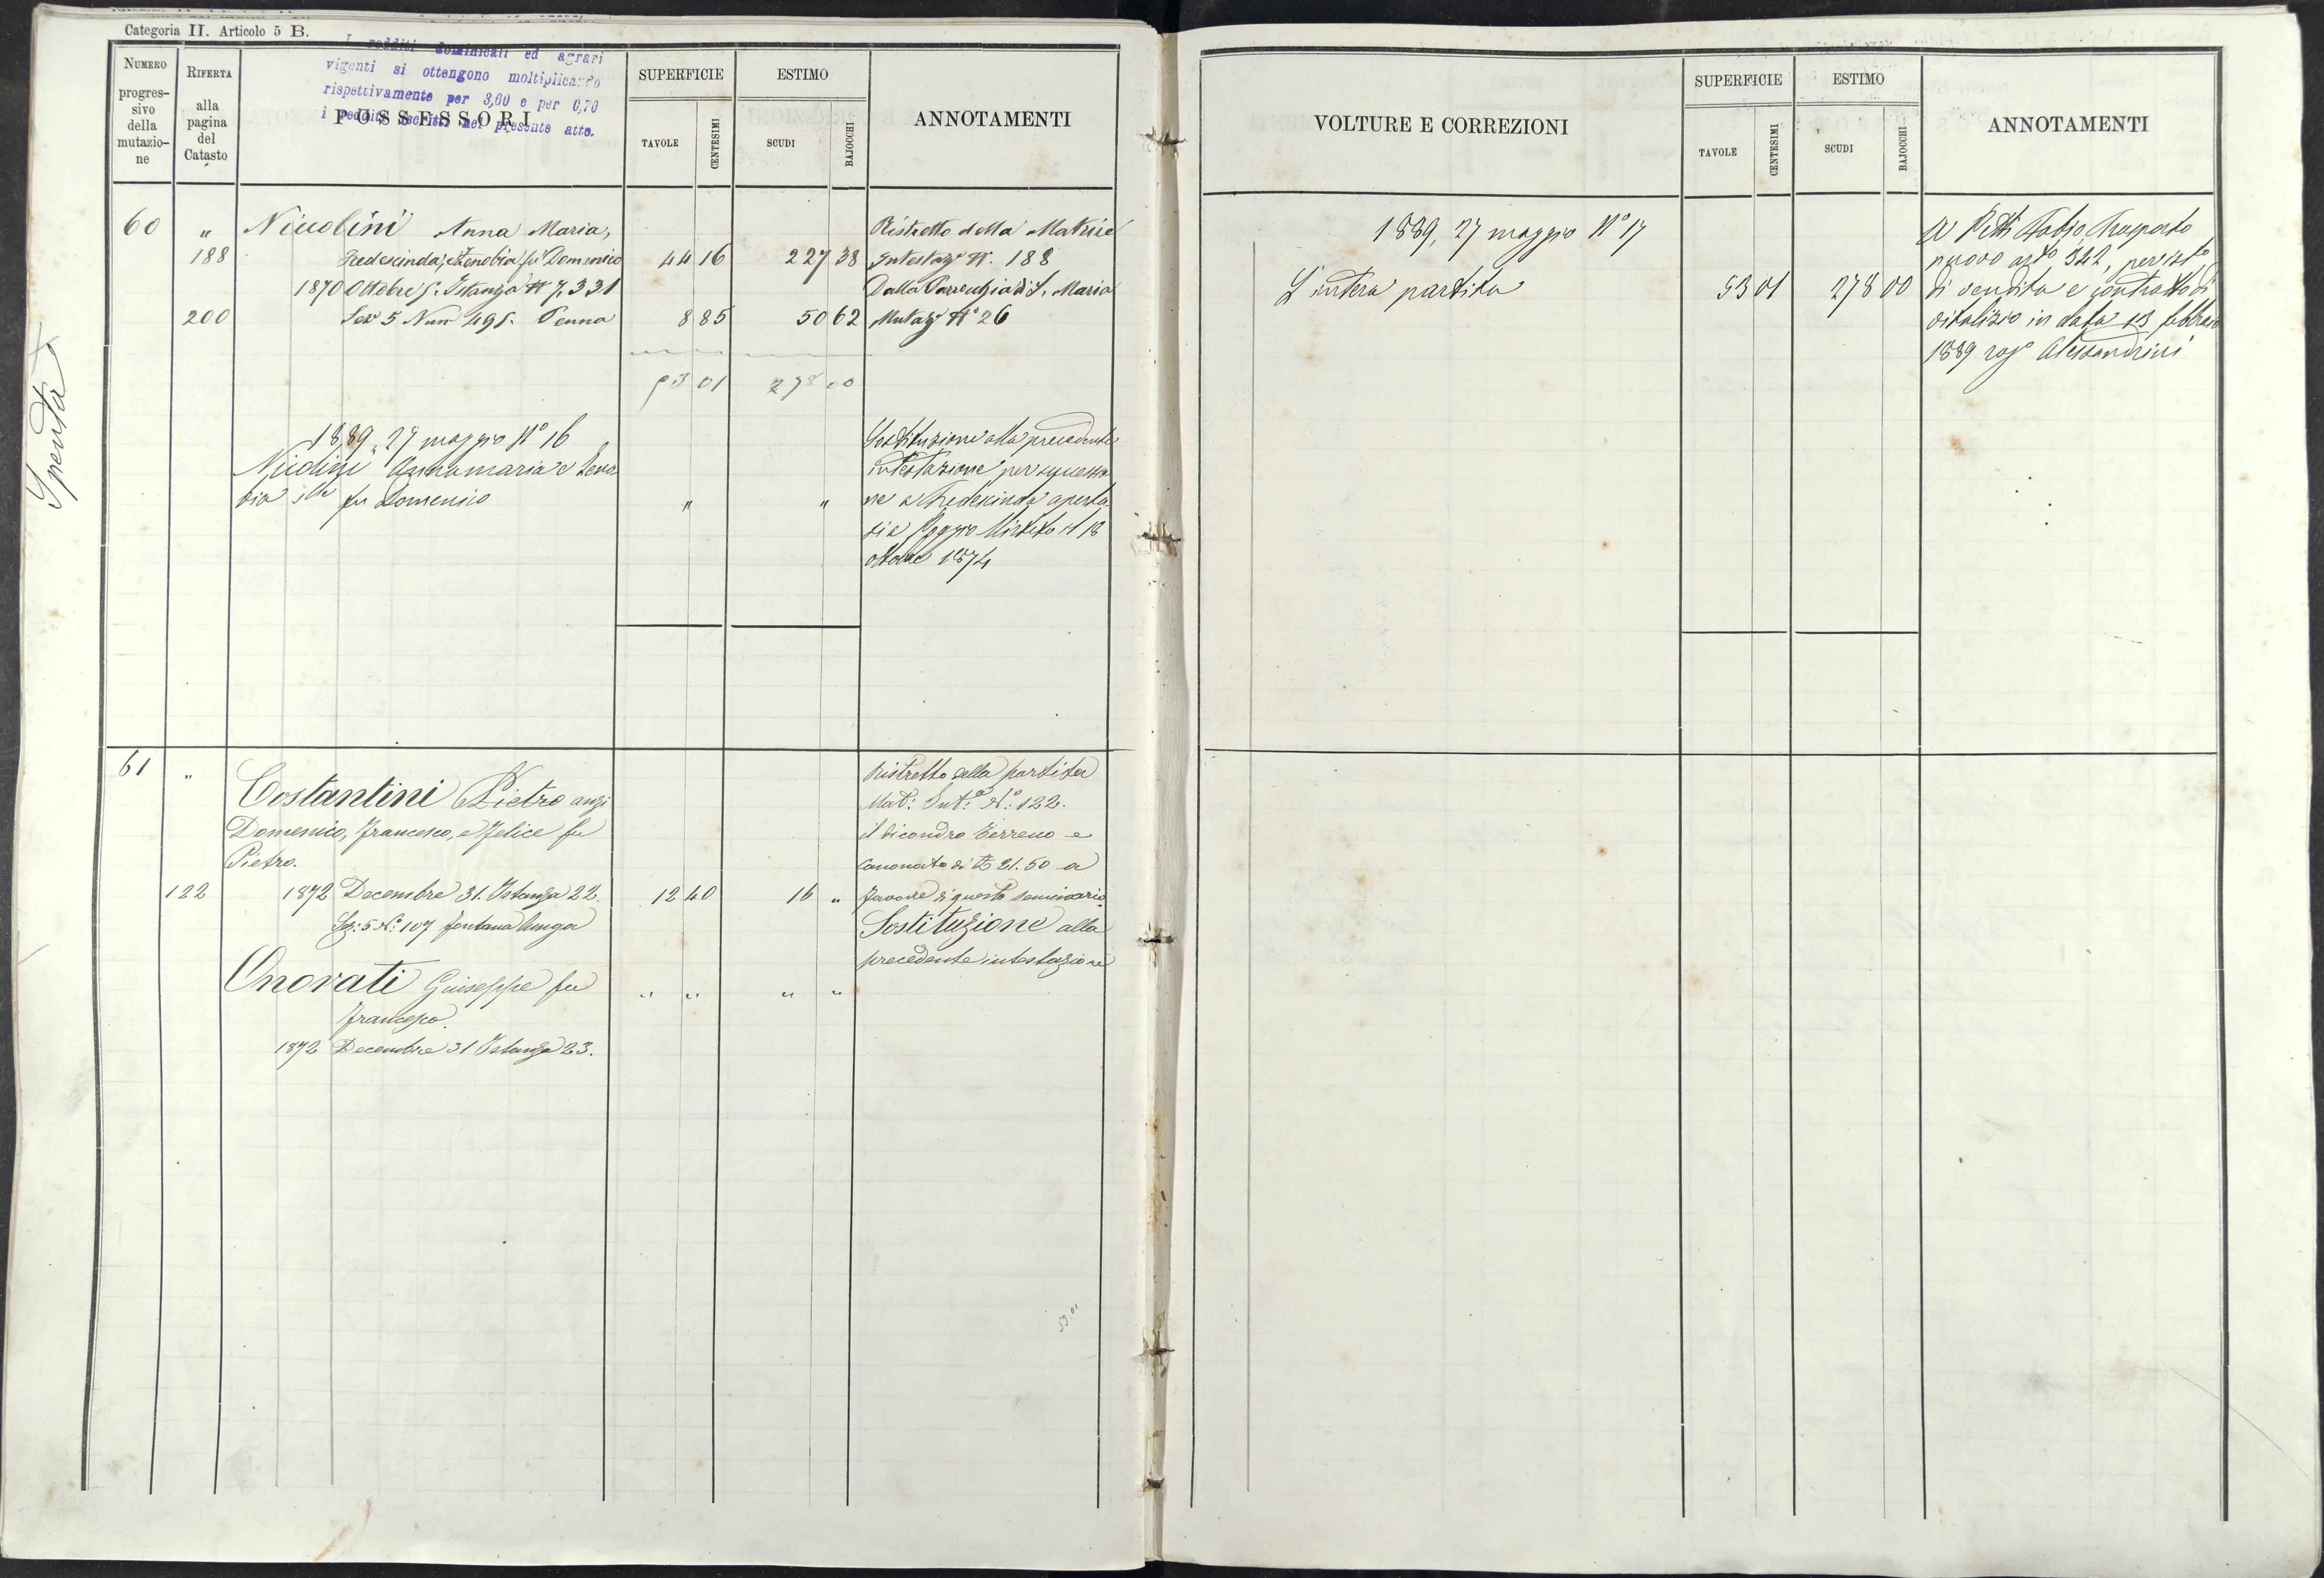 Categoria II. Articolo 5 B.
I redditi dominicali ed agrari
vigenti si ottengono moltiplicando
rispettivamente per 3,60 e per 0,70
i redditi iscritti nel presente atto.
NUMERO
progres-
sivo
della
mutazio-
ne
RIFERTA
alla
pagina
del
Catasto
POSSESSORI
SUPERFICIE
TAVOLE
CENTESIMI
ESTIMO
SCUDI
BAJOCCHI
ANNOTAMENTI
Spenta
60 " Nicolini Anna Maria, Ristretto della Matrice
188 Fredescinda, e Zenobia fu Domenico 44 16 227 38 Intestaz. N. 188
1870 Ottobre 5. Istanza N 7,331 Dalla Parrocchia di S. Maria
200 Sez 5 Num 495. Penna 8 85 50 62 Mutaz N° 26
53 01 278 00
1889, 27 maggio N° 16 Sostituzione alla precedente
Nicolini Annamaria e Zeno intestazione per successio
bia fu Domenico " " ne a Fredescinda aperta
si a Poggio Mirteto il 18
ottobre 1874
61 " Ristretto della partita
Costantini Pietro anzi Mat: Int: N°: 122.
Domenico, Francesco, e Felice fu il dicondro Terreno e
Pietro. canonato di £ 21.50 a
122 1872 Decembre 31. Istanza 22. 12 40 16 " favore di questo seminario
Sez: 5 N°: 107 fontana Sostituzione alla
precedente intestazione
Onorati Giuseppe fu " " " "
Francesco.
1872 Decembre 31 Istanza 23.
53.01
VOLTURE E CORREZIONI
SUPERFICIE
TAVOLE
CENTESIMI
ESTIMO
SCUDI
BAJOCCHI
ANNOTAMENTI
1889, 27 maggio N° 17 A Petti Fabzio, Trasporto
nuovo art° 342, per
L'intera partita 53 01 278 00 di vendita e contratto di
vitalizio in data 13 febbraio
1889 rog° Alessandrini